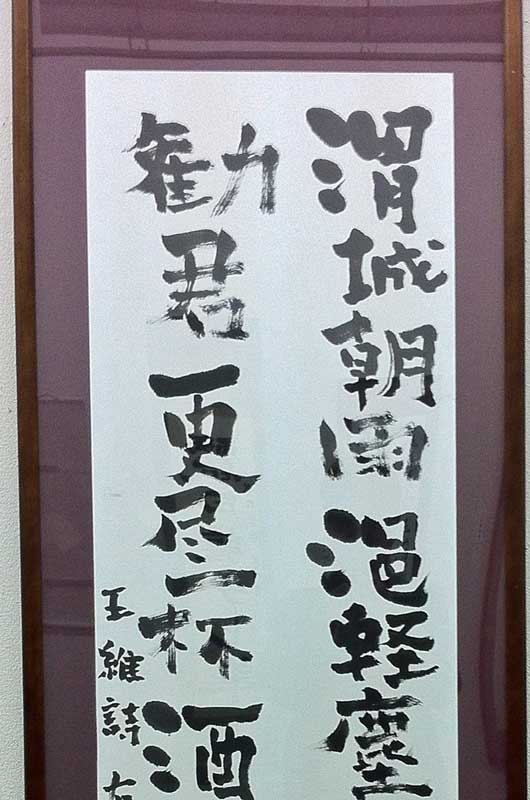 渭城朝雨浥軽塵
勧君更尽一杯酒
王維詩